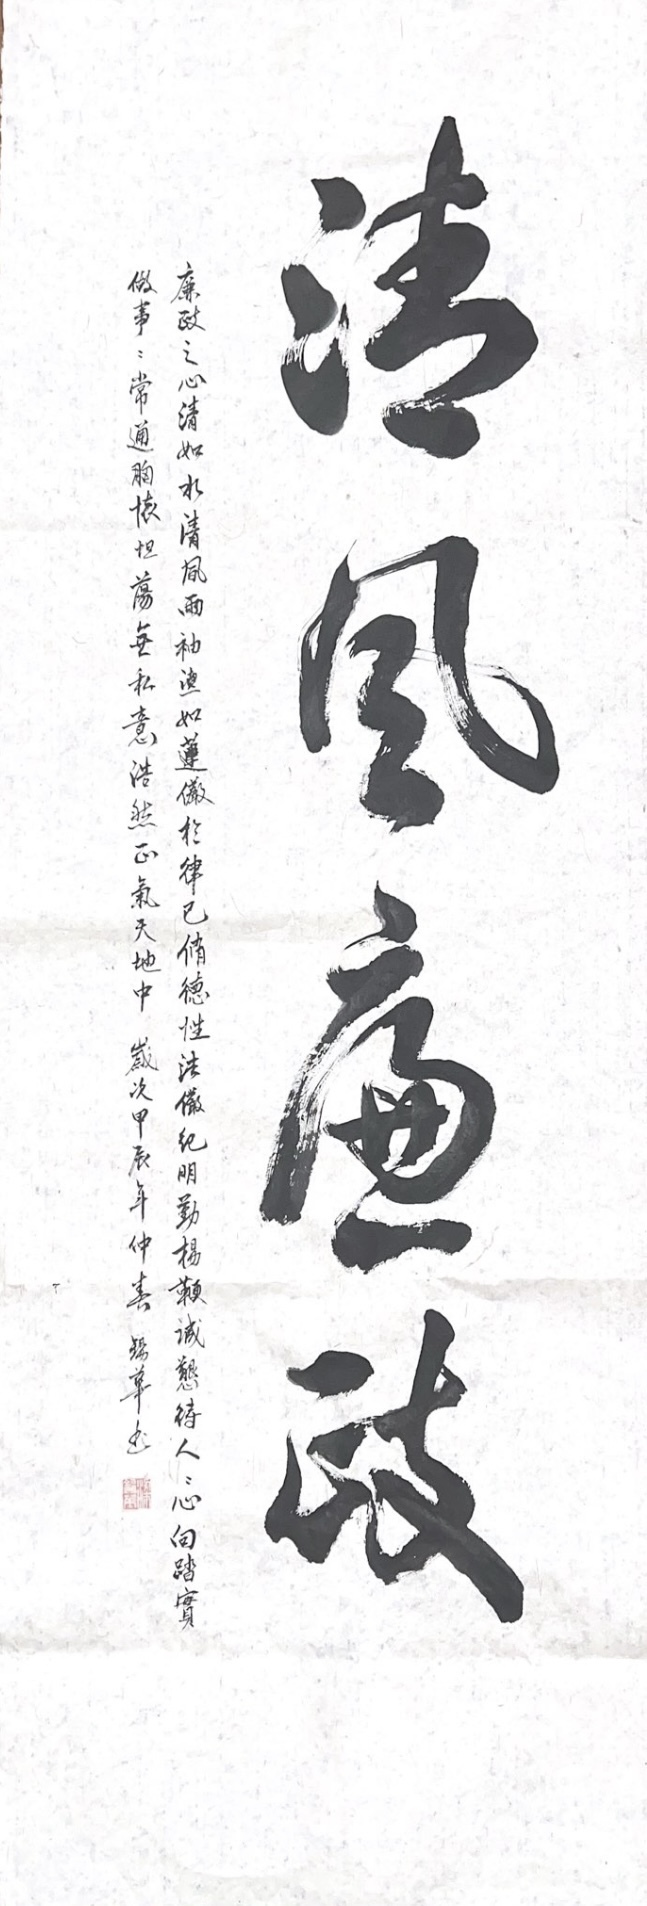 清风廉政
廉政之心清如水清風両袖漣如蓮儆於律已脩德性法儆紀明勤楊鞭誠懇待人〻心向踏實
做事〻常通胸懷坦蕩無私意浩然正氣天地中 歲次甲辰年仲春 華书